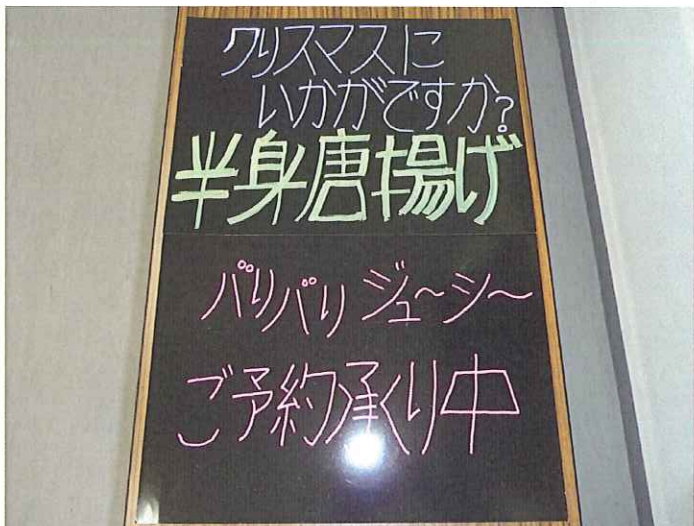 クリスマスに
いかがですか?
半身唐揚げ
パリパリ ジュ〜シ〜
ご予約承くり中